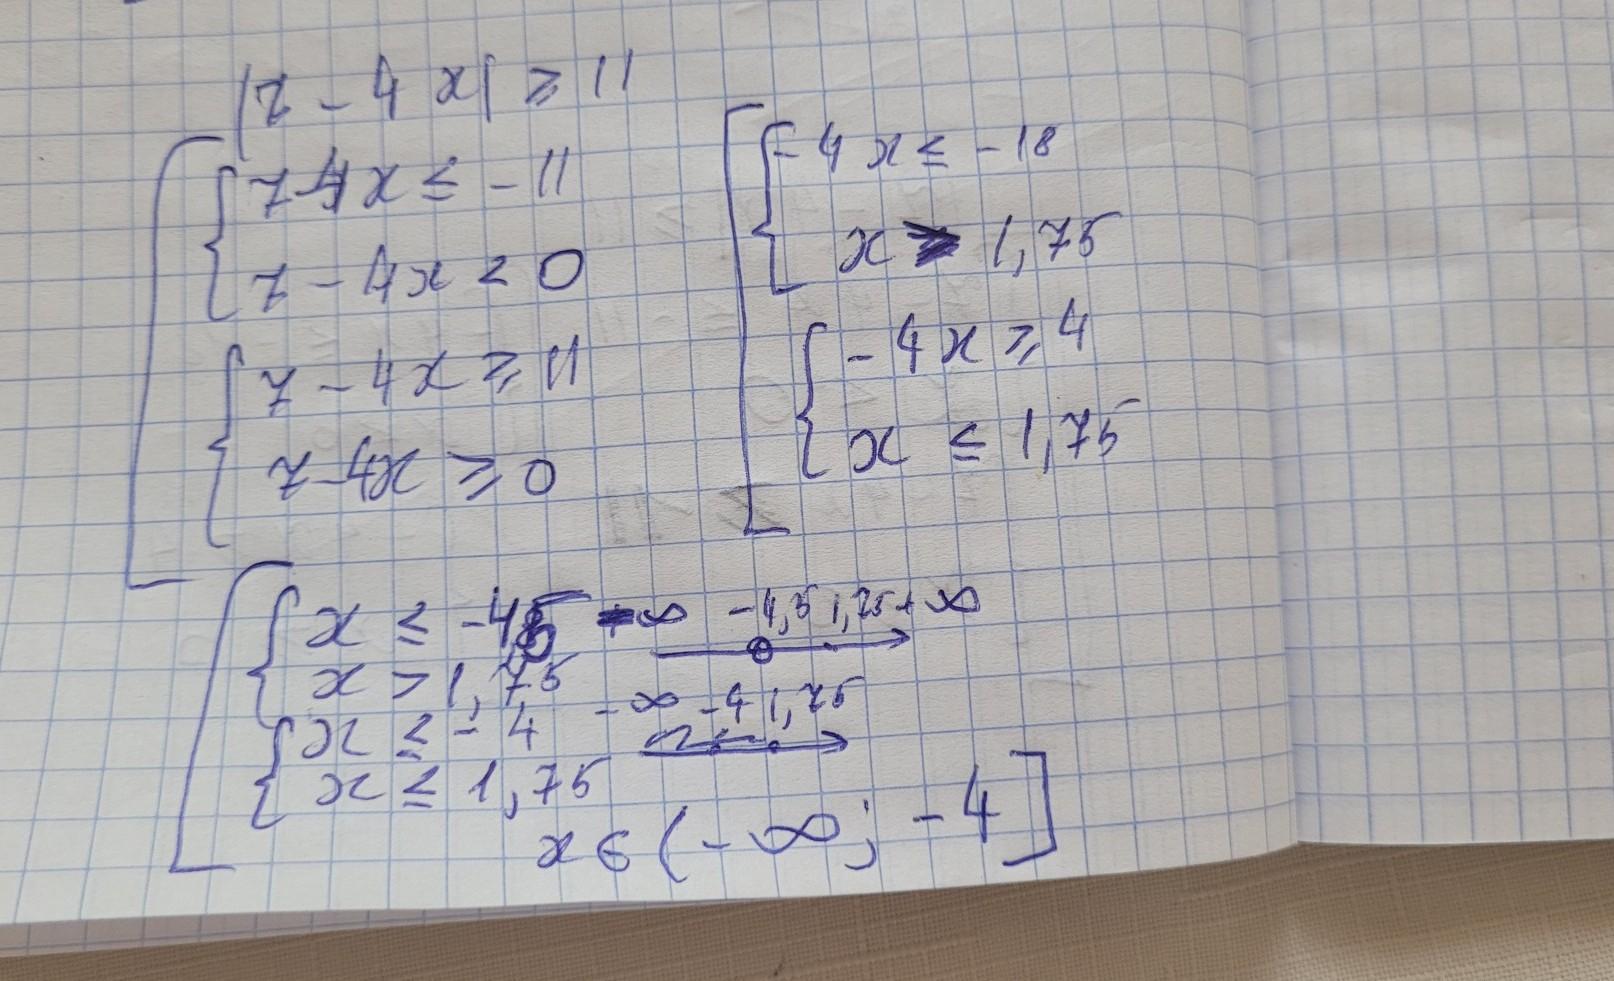 |7 - 4x| ≥ 11
7 - 4x ≤ - 11
7 - 4x < 0
7 - 4x ≥ 11
7 - 4x ≥ 0
- 4x ≤ - 18
x > 1,75
- 4x ≥ 4
x ≤ 1,75
x ≤ -4,5
x > 1,75
-∞ -4,5 1,75 +∞
x ≤ - 4
x ≤ 1,75
-∞ -4 1,75
x ∈ (-∞; -4]